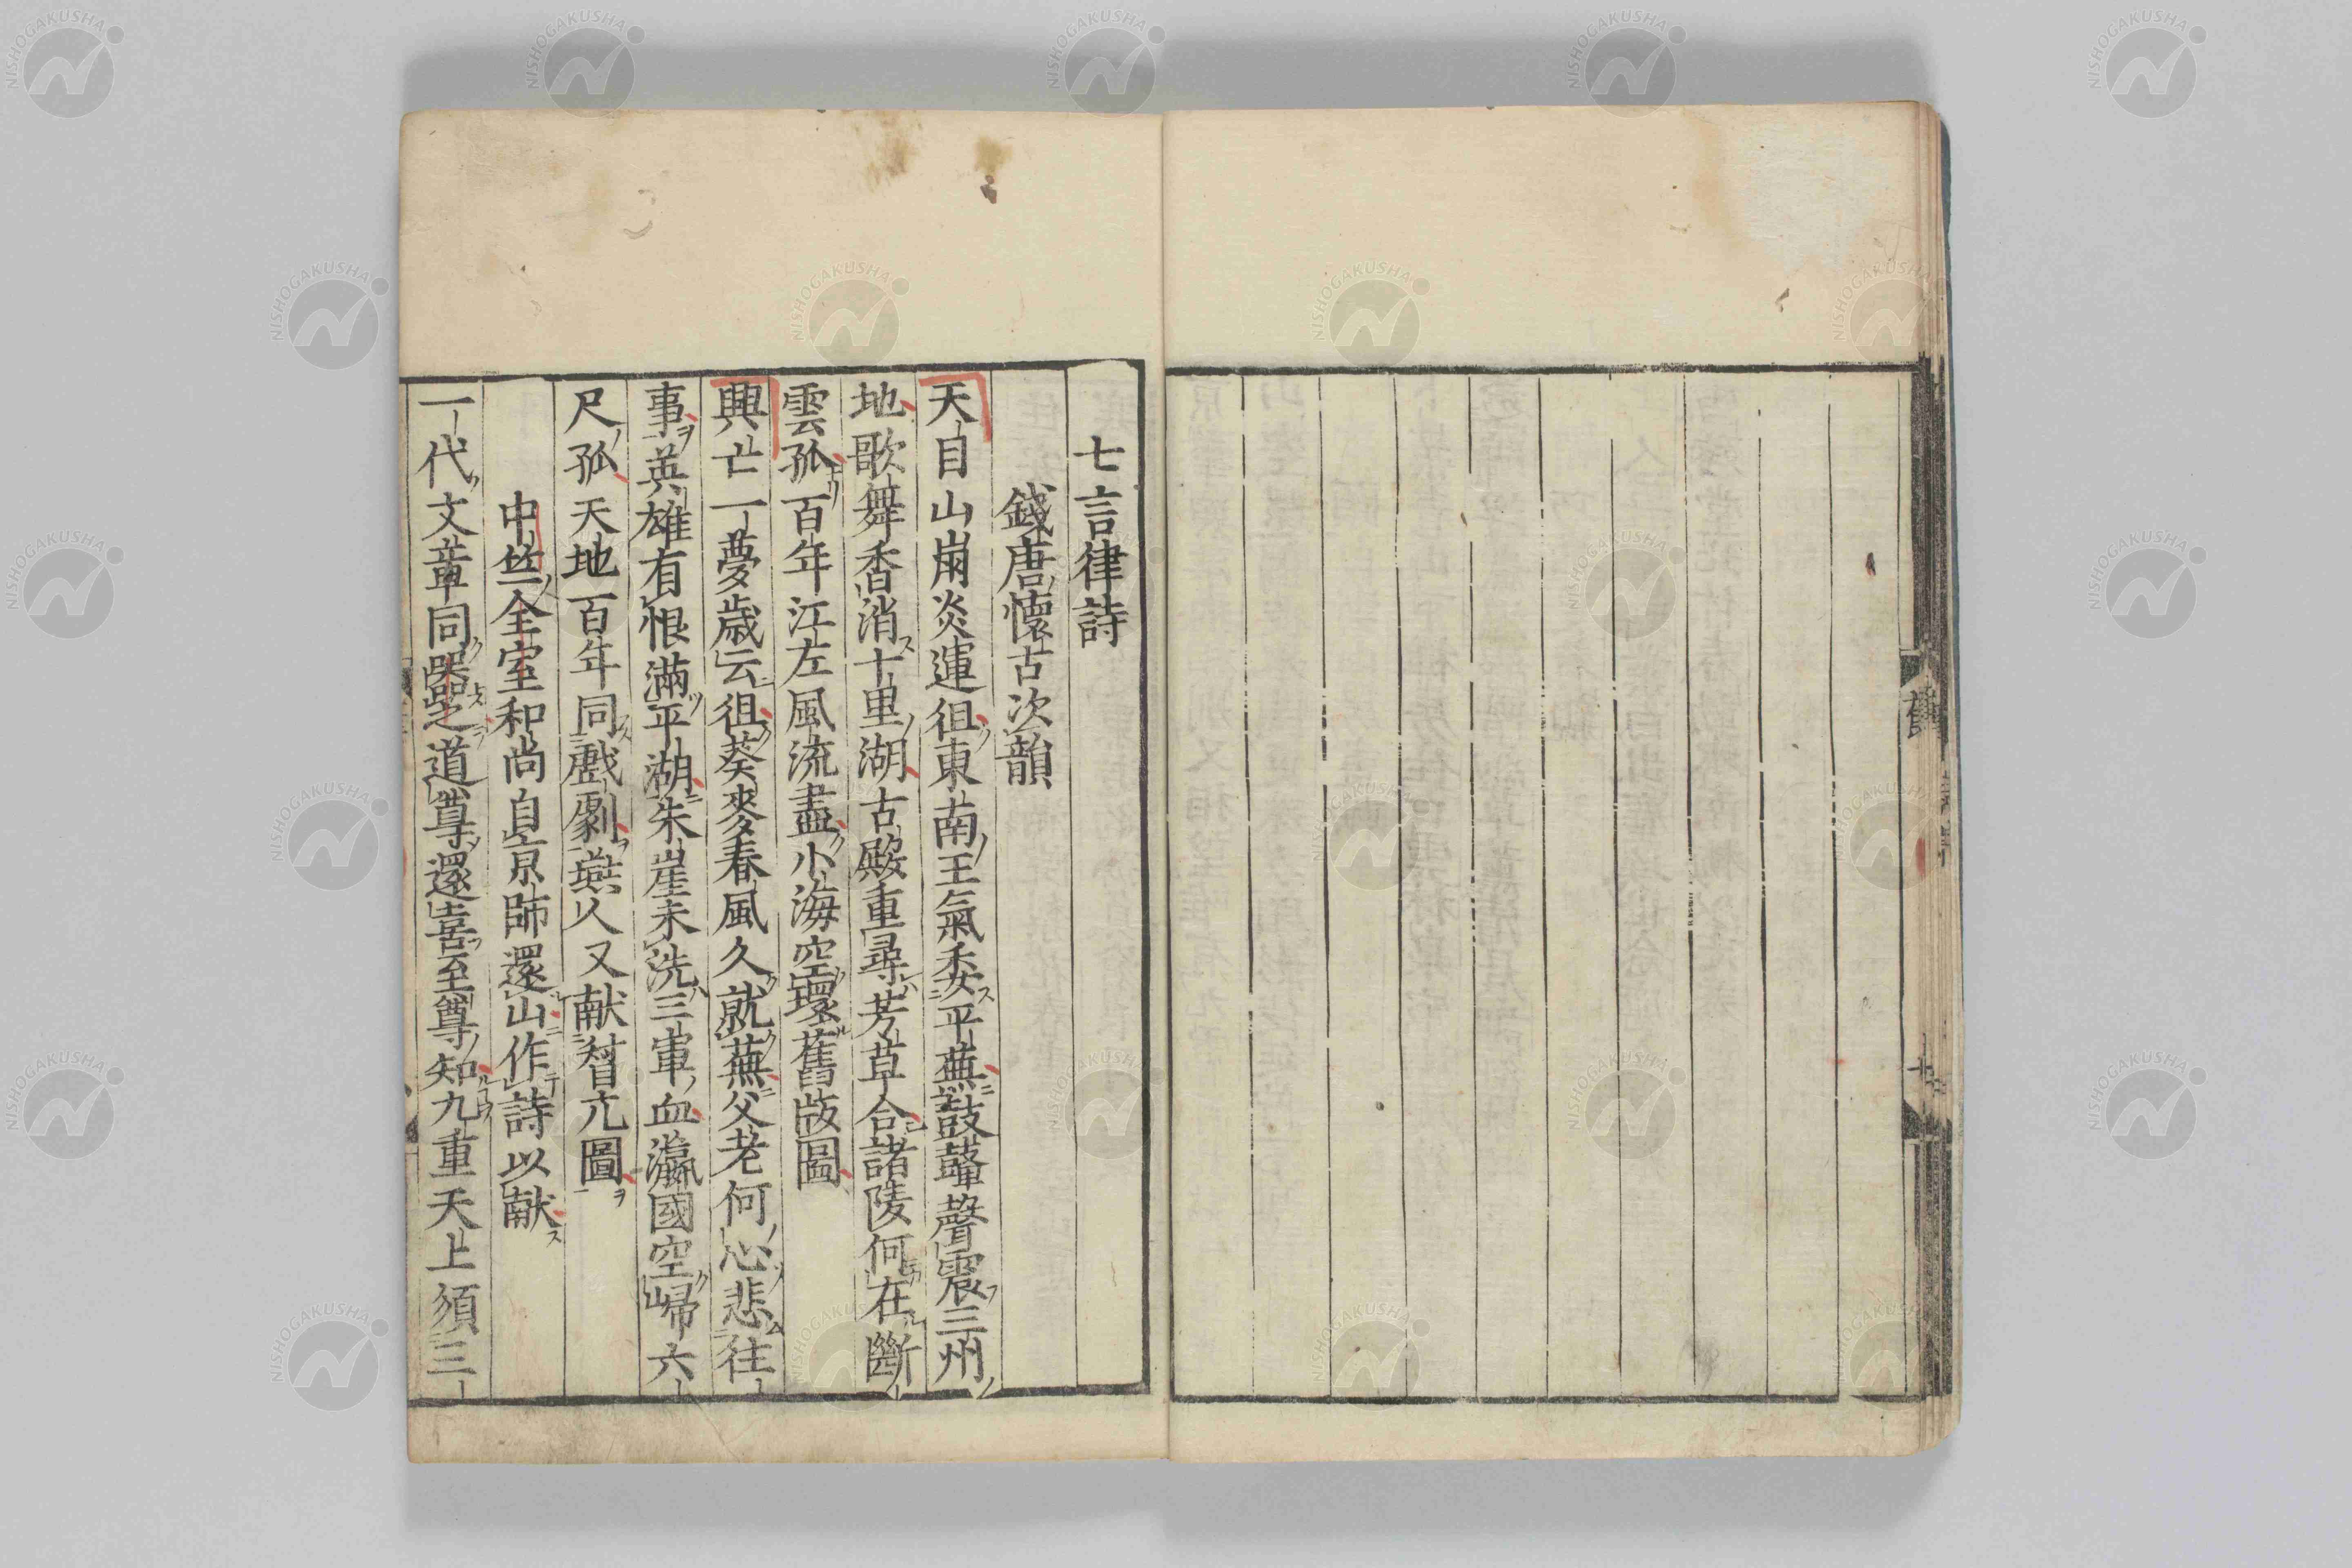 七言律詩
錢唐懷古次韻
天目山崩炎運徂東南王氣委平蕪鼓鼙聲震三州
地歌舞香消十里湖古殿重尋芳草合諸陵何在斷
雲孤百年江左風流盡小海空環舊版圖
興亡一夢歳云徂葵麥春風久就蕪父老何心悲往
事英雄有恨滿平湖朱崖未洗三軍血瀛國空歸六
尺孤天地百年同戲劇燕人又献督亢圖
中竺全室和尚自京師還山作詩以献
一代文章同噐之道尊還喜至尊知九重天上須三
NISHOGAKUSHA